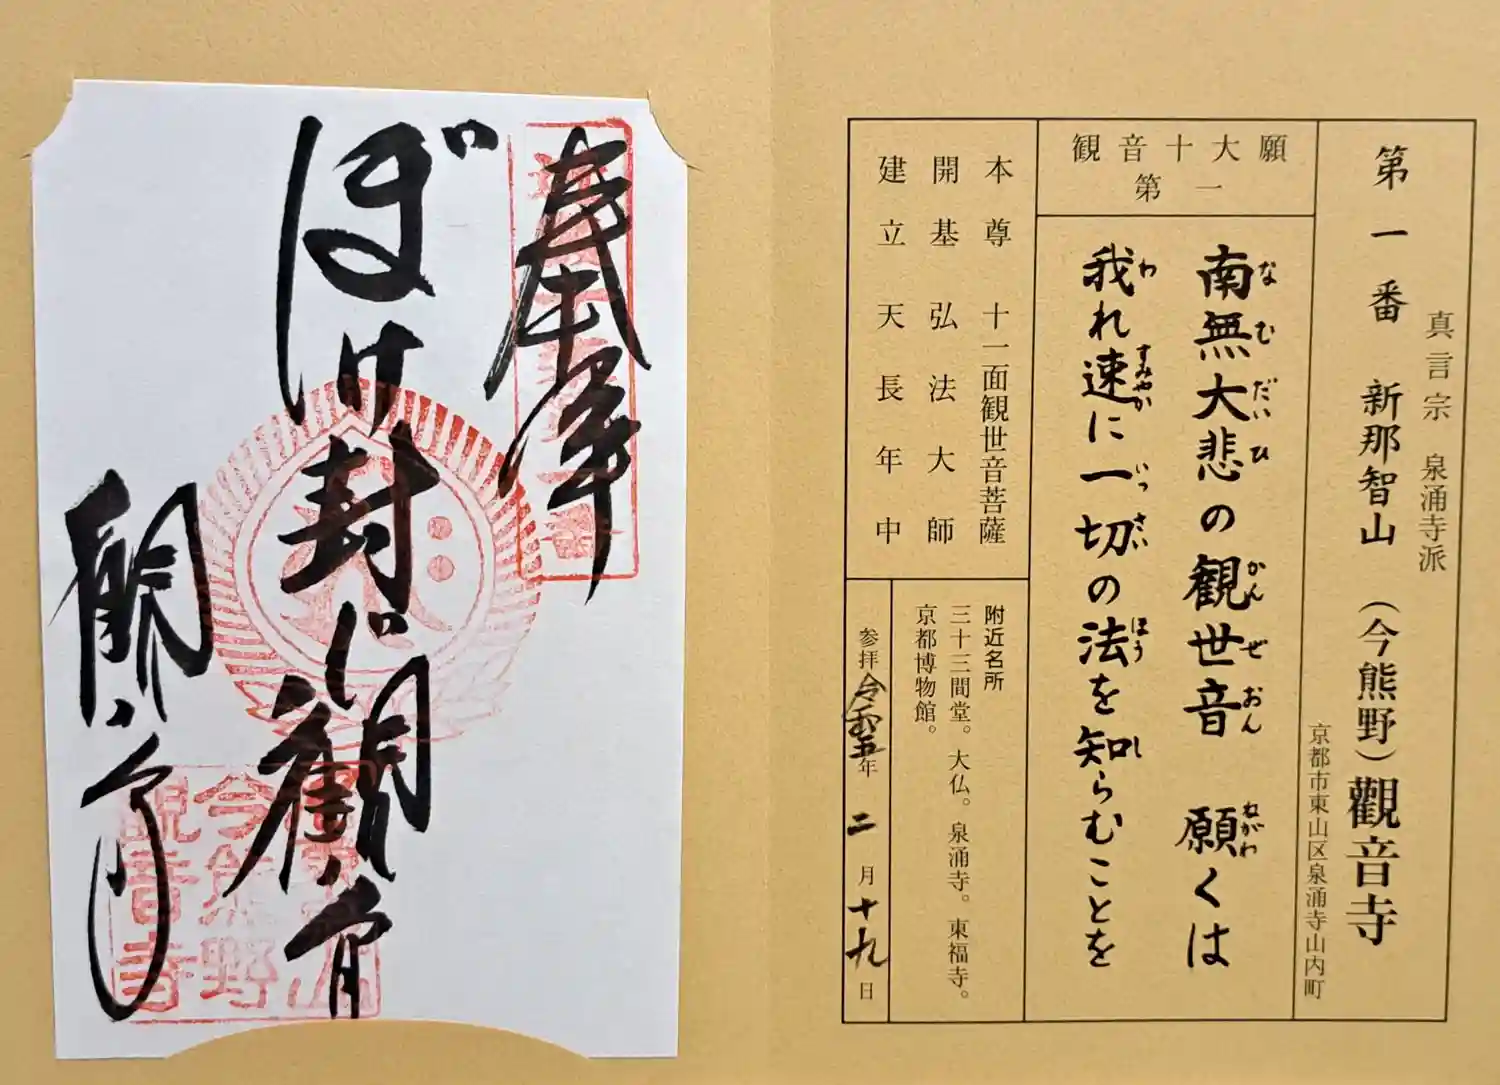 真言宗 泉涌寺派
第一番 新那智山 (今熊野) 觀音寺
京都市東山区泉涌寺山内町
観音十大願
第一
南無大悲の観世音 願くは
なむだいひ かんぜおん ねがわ
我れ速に一切の法を知らむことを
わ すみやか いっさい ほう し
本尊 十一面観世音菩薩
開基 弘法大師
建立 天長年中
附近名所
三十三間堂。大仏。泉涌寺。東福寺。
京都博物館。
参拝令和五年 二月十九日
奉拝
ぼけ封じ観音
観音寺
今熊野
観音寺